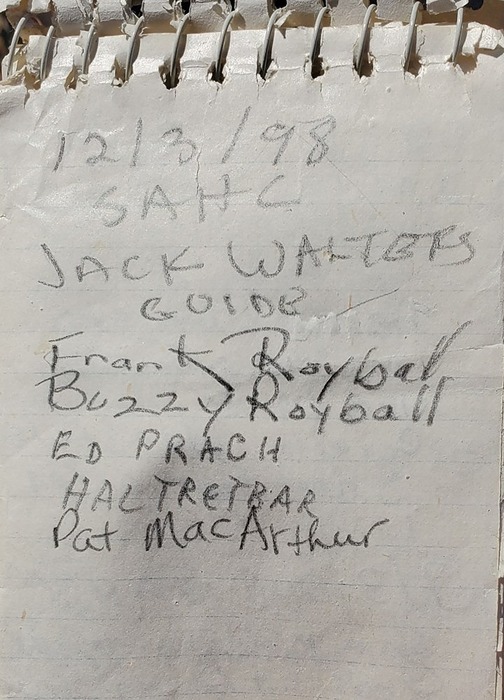 12/3/98
SAHC
JACK WALTERS
GUIDE
Frank Royball
Buzzy Royball
ED PRACH
HAL TRETBAR
Pat MacArthur